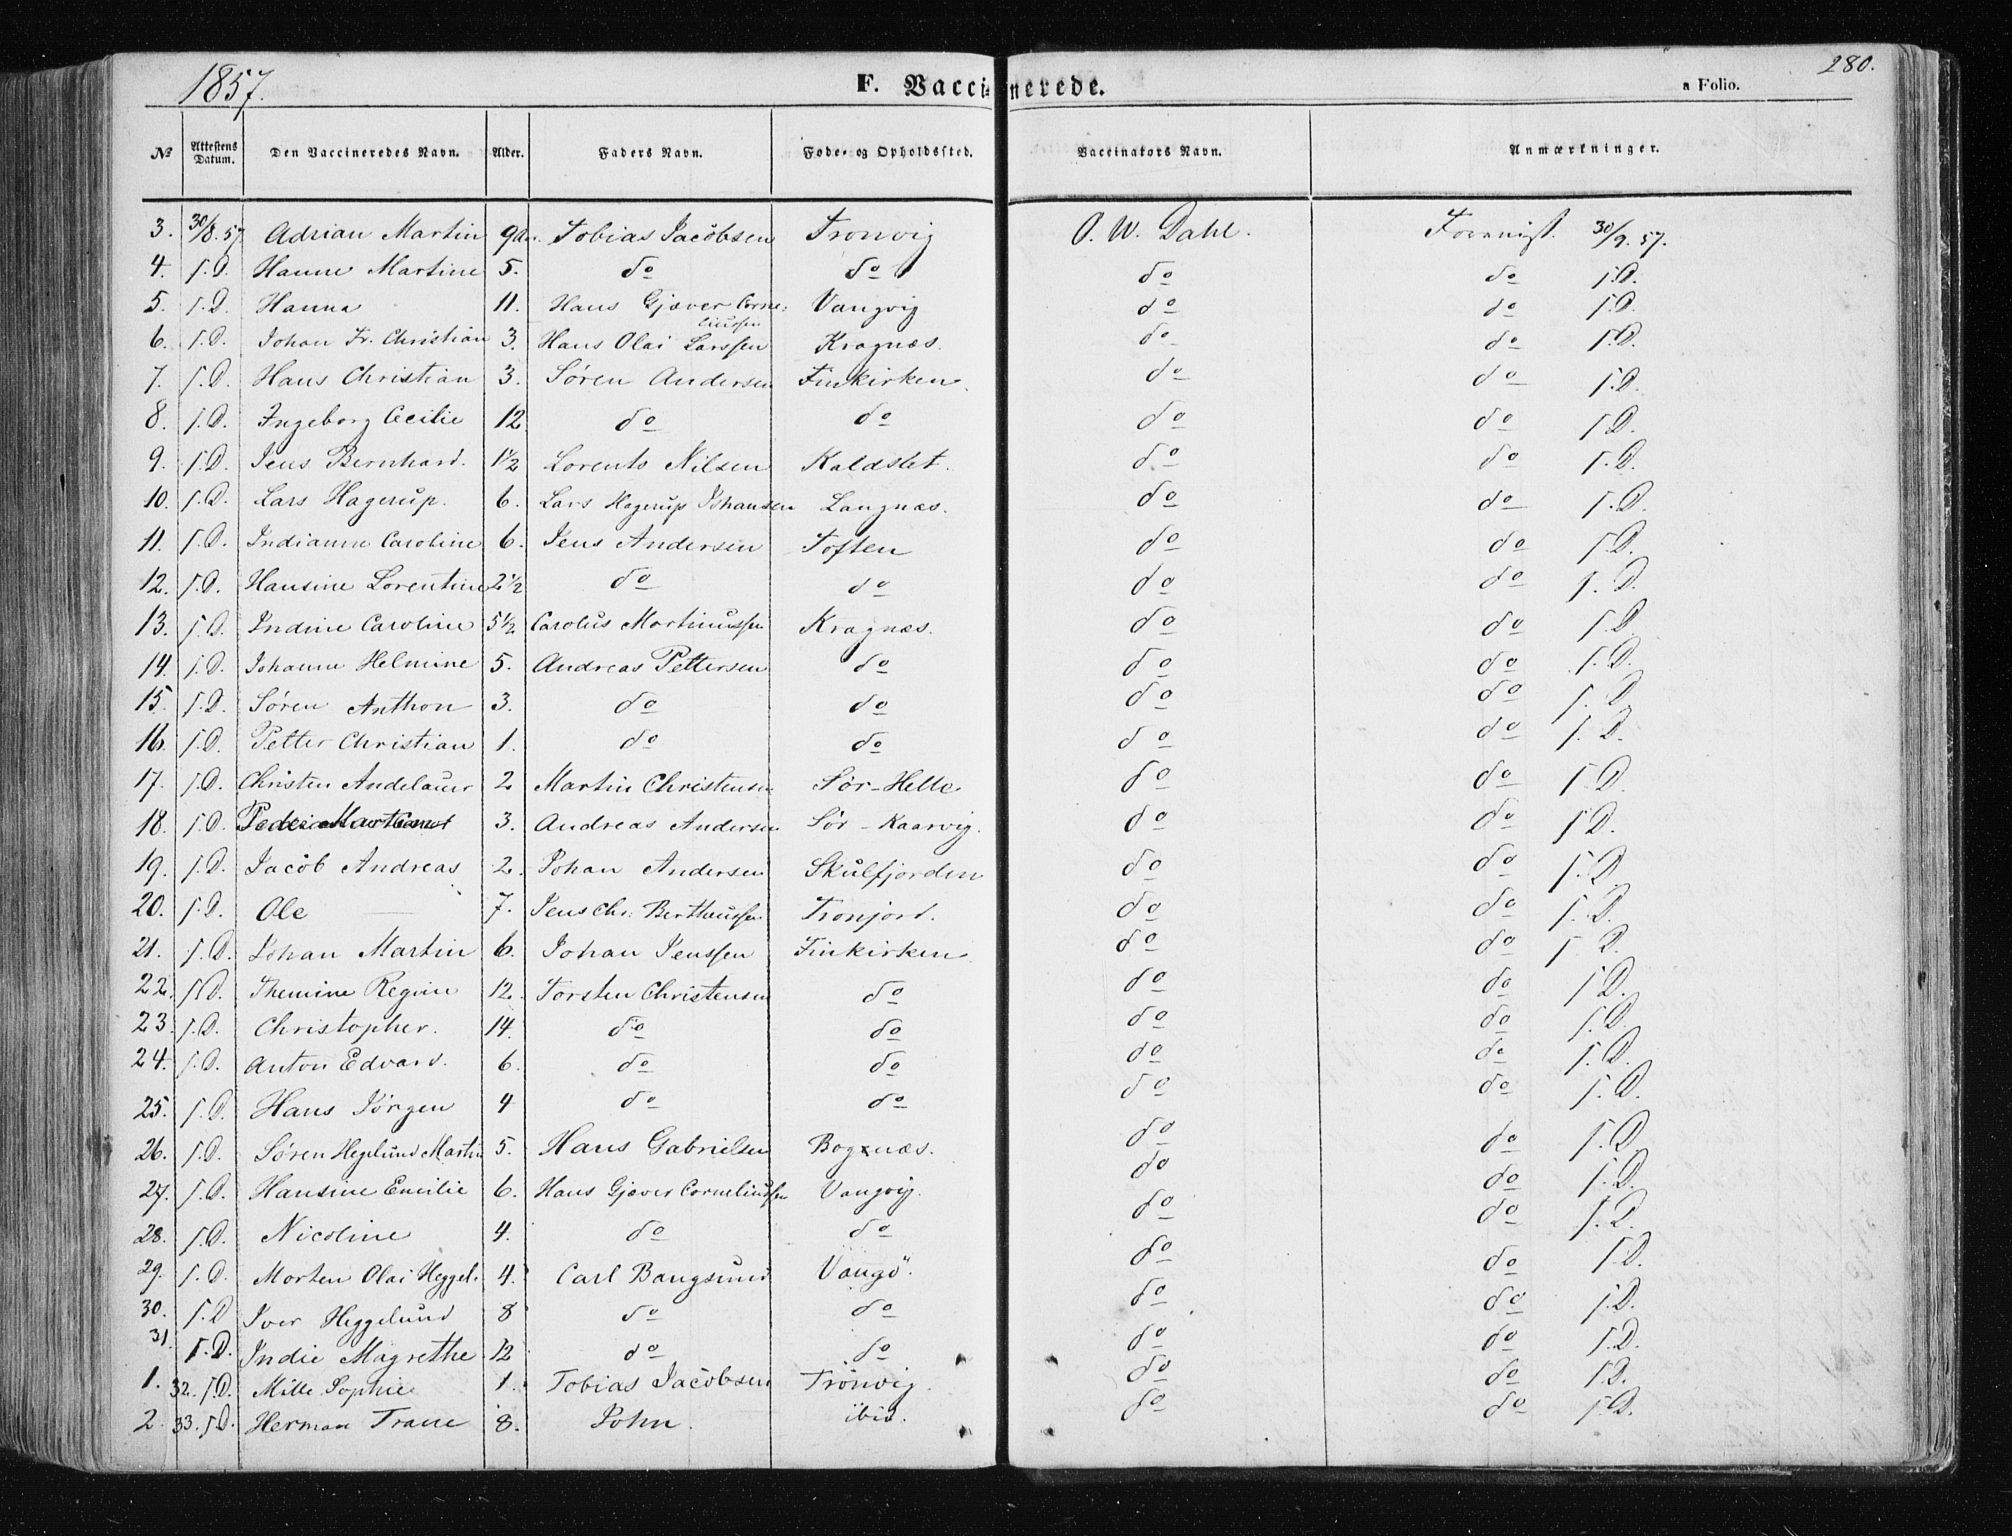 1857. F. Vaccinerede. a Folio. 280.
№ Attestens Datum. Den Vaccineredes Navn. Alder. Faders Navn. Føde- og Opholdssted. Vaccinators Navn. Anmærkninger.
3. 30/8.57 Adrian Martin 9 Tobias Jacobsen Tronvig O. W. Dahl. 30/9.57.
4. s.D. Hanne Martine 5. do do do do s.D.
5. s.D. Hanna 11. Hans Gjæver Corne: Vangvig do do s.D.
liussen
6. s.D. Johan Fr. Christian 3. Hans Olai Larssen Kragnæs. do do s.D.
7. s.D. Hans Christian 3. Søren Andersen Finkirken. do do s.D.
8. s.D. Ingeborg Cecilie 12. do do do do s.D.
9. s.D. Jens Bernhard. 1½ Lorents Nilsen Kaldslet. do do s.D.
10. s.D. Lars Hagerup. 6. Lars Hagerup Johansen Langnæs. do do s.D.
11. s.D. Indianne Caroline 6. Jens Andersen Toften do do s.D.
12. s.D. Hansine Lorentine 2½ do do do do s.D.
13. s.D. Indine Caroline 5½ Carolus Martinussen Kragnæs. do do s.D.
14. s.D. Johanne Helmine 5. Andreas Pettersen do do do s.D.
15. s.D. Søren Anthon 3. do do do do s.D.
16. s.D. Petter Christian 1. do do do do s.D.
17. s.D. Christen Andelauer 2 Martin Christensen Sør-Helle do do s.D.
18. s.D. 3. Andreas Andersen Sør-Kaarvig. do do s.D.
19. s.D. Jacob Andreas 2. Johan Andersen Skulfjorden do do s.D.
20. s.D. Ole 7. Jens Chr: Bertheussen Tronjord. do do s.D.
21. s.D. Johan Martin 6. Johan Jenssen Finkirken do do s.D.
22. s.D. Themine Regine 12. Torsten Christensen do do do s.D.
23. s.D. Christopher. 14 do do do do s.D.
24. s.D. Anton Edvard. 6. do do do do s.D.
25. s.D. Hans Jørgen 4 do do do do s.D.
26. s.D. Søren Hegelund Martin 5. Hans Gabrielsen Bognæs. do do s.D.
27. s.D. Hansine Emilie 6. Hans Gjæver Corneliussen Vangvig. do do s.D.
28. s.D. Nicoline 4. do do do do s.D.
29. s.D. Morten Olai Heggel. 4. Carl Bangsund Vangö. do do s.D.
30. s.D Iver Heggelund 8 do do do do s.D.
31. s.D. Indie Magrethe 12 do do do do s.D.
1. 32. s.D. Mille Sophie 1. Tobias Jacobsen Tronvig. do do s.D.
2. 33. s.D. Herman Trane 8. John. ibid. do do s.D.